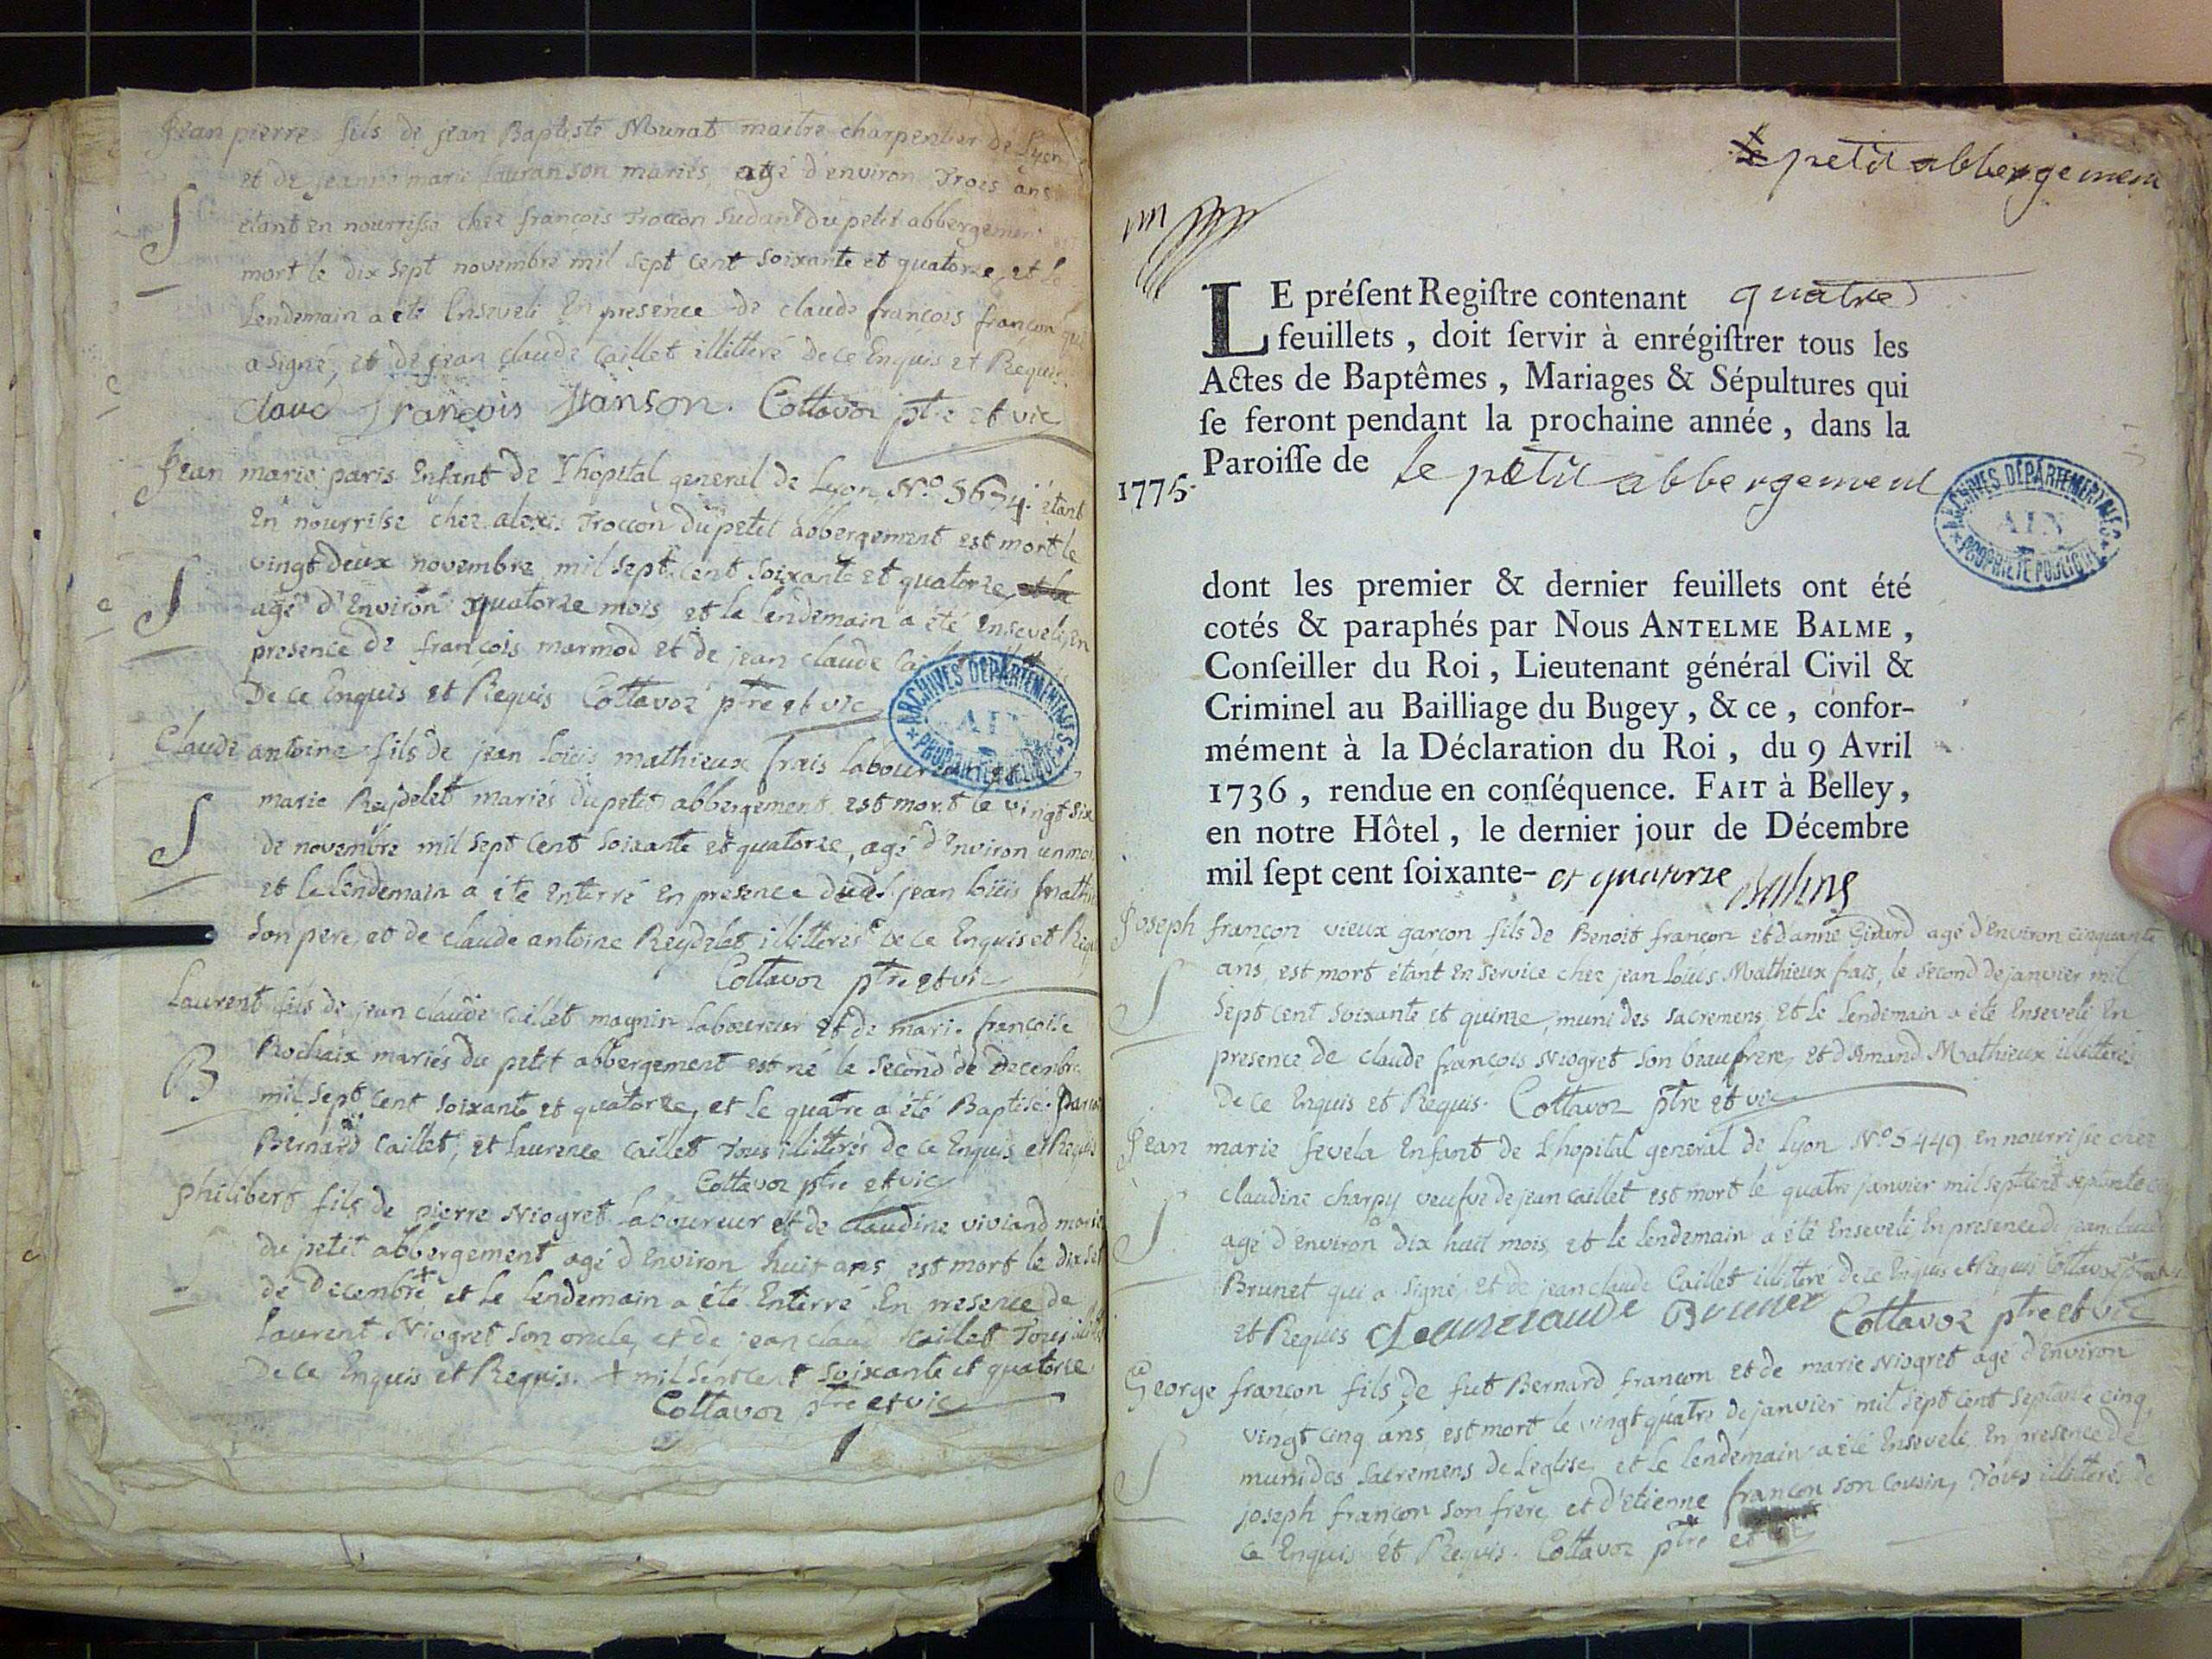 Jean pierre fils de jean Baptiste Murat maitre charpentier de Lyon
et de jeanne marie mariés, agé d'environ Trois ans
étant en nourrisse chez françois Troccon Sudant du petit abbergement
mort le dix sept novembre mil sept cent soixante et quatorze, et le
Lendemain a été Enseveli En presence de claude françois françon qui
a signé, et de jean claude Caillet illitteré de ce Enquis et Requis.
Claud François franson. Cottavoz ptre et vic
Jean marie paris Enfant de Lhopital general de Lyon, No. 5674. étant
En nourrisse chez alexis Troccon du petit abbergement est mort le
vingt deux novembre mil sept cent soixante et quatorze, et le
agé d'Environ quatorze mois, et le lendemain a été Enseveli, En
presence de françois marmod et de jean claude
De ce Enquis et Requis Cottavoz ptre et vic
Claude antoine fils de jean Loüis mathieux frais
marie Reydelet mariés du petit abbergement est mort le vingt six
de novembre mil sept cent soixante et quatorze, agé d'Environ un
et le lendemain a été Enterré en presence jean loüis
son pere, et de claude antoine Reydelet illitterés de ce Enquis et
Cottavoz ptre et vic
Laurent fils de jean claude Caillet magnin laboureur et de marie françoise
Rochaix mariés du petit abbergement est né le second de Decembre
mil sept cent soixante et quatorze, et le quatre a été Baptisé.
Bernard Caillet, et Laurence Caillet Tous illitterés de ce Enquis et Requis
Cottavoz ptre et vic
philibert fils de pierre Niogret laboureur et de claudine viviand
du petit abbergement agé d'Environ huit ans est mort le dix
de Decembre + et le lendemain a été Enterré En presence de
Laurent Niogret son oncle, et de jean claude Caillet Tous
De ce Enquis et Requis. + mil sept cent soixante et quatorze
Cottavoz ptre et vic
ARCHIVES DÉPARTEMENTALES
AIN
PROPRIÉTÉ PUBLIQUE
le petit abbergement
LE préſent Regiſtre contenant quatre
feuillets, doit ſervir à enrégiſtrer tous les
Actes de Baptêmes, Mariages & Sépultures qui
ſe feront pendant la prochaine année, dans la
Paroiſſe de le petit abbergement
1775.
ARCHIVES DÉPARTEMENTALES
AIN
PROPRIÉTÉ PUBLIQUE
dont les premier & dernier feuillets ont été
cotés & paraphés par Nous ANTELME BALME,
Conſeiller du Roi, Lieutenant général Civil &
Criminel au Bailliage du Bugey, & ce, confor-
mément à la Déclaration du Roi, du 9 Avril
1736, rendue en conſéquence. FAIT à Belley,
en notre Hôtel, le dernier jour de Décembre
mil ſept cent ſoixante- et quatorze Balme
Joseph françon vieux garçon fils de Benoit françon et d'anne Girard agé d'Environ cinquante
ans, est mort étant En service chez jean Louis Mathieux frais, le second de janvier mil
sept cent soixante et quinze, muni des sacremens, et le lendemain a été Enseveli En
presence de claude françois Niogret son beaufrere, et d'Amand Mathieux illitterés
De ce Enquis et Requis. Cottavoz ptre et vic
Jean marie sevela Enfant de Lhopital general de Lyon No 5449 en nourrisse chez
claudine charpy veufve de jean caillet est mort le quatre janvier mil sept cent septante
agé d'Environ dix huit mois, et le lendemain a été Enseveli En presence de jean claude
Brunet qui a signé, et de jean claude Caillet illitteré de ce Enquis et Requis
et Requis Jean claude Brunet Cottavoz ptre et vic
George françon fils de fut Bernard françon et de marie Niogret agé d'Environ
vingt cinq ans, est mort le vingt quatre de janvier mil sept cent septante cinq,
muni des sacremens de Leglise, et le lendemain a été Enseveli En presence de
joseph françon son frere, et d'Etienne françon son cousin, Tous illitterés de
ce Enquis et Requis. Cottavoz ptre et